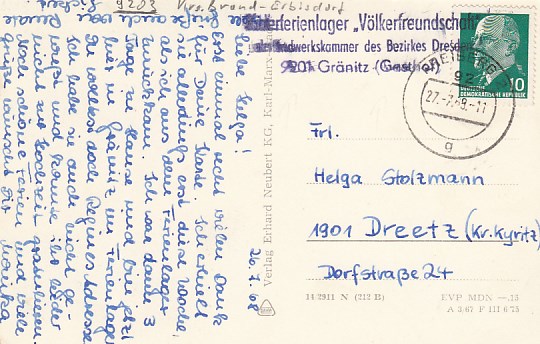 9203 Krs. Brand-Erbisdorf
erferienlager „Völkerfreundschaft"
Handwerkskammer des Bezirkes Dresden
9201 Gränitz (Gasthof)
FREIBERG
92
27.-7.68.-11
g
10
DEUTSCHE
DEMOKRATISCHE REPUBLIK
Liebe Helga!
Erst einmal recht vielen Dank
für Deine Karte. Ich erhielt
sie allerdings erst diese Woche,
als ich aus dem Ferienlager
zurückkam. Ich war dann 3
Tage zu Hause und bin jetzt
hier in Gränitz im Ferienlager.
Du wolltest doch Reginas Adresse
Ich habe sie auch nicht ge-
wußt und konnte ihr leider
nicht zur Hochzeit gratulieren.
Noch schöne Ferien und viele
Grüße wünscht Dir
Monika
26.7.68
Verlag Erhard Neubert KG, Karl-Marx-
Frl.
Helga Stolzmann
1901 Dreetz (Kr. Kyritz)
Dorfstraße 24
11/2911 N (212 B)
EVP MDN –.15
A 3/67 F 111 6/75